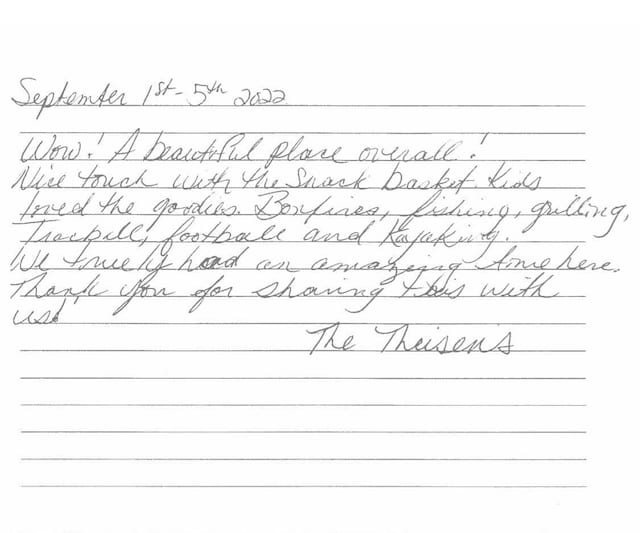 September 1st - 5th 2022
Wow! A beautiful place overall!
Nice touch with the Snack basket. Kids
loved the goodies. Bonfires, fishing, grilling,
football and Kayaking.
We truely had an amazing time here.
Thank you for sharing this with
us!
The Theisen's